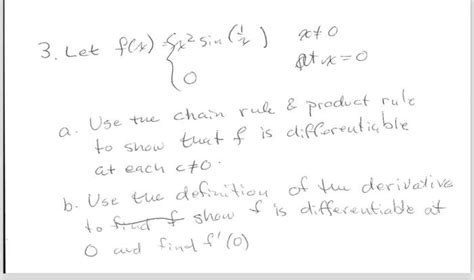 3. Let f(x) = { x² sin(1/x) x≠0
0 at x=0
a. Use the chain rule & product rule
to show that f is differentiable
at each c≠0.
b. Use the definition of the derivative
to find f show f is differentiable at
0 and find f'(0)